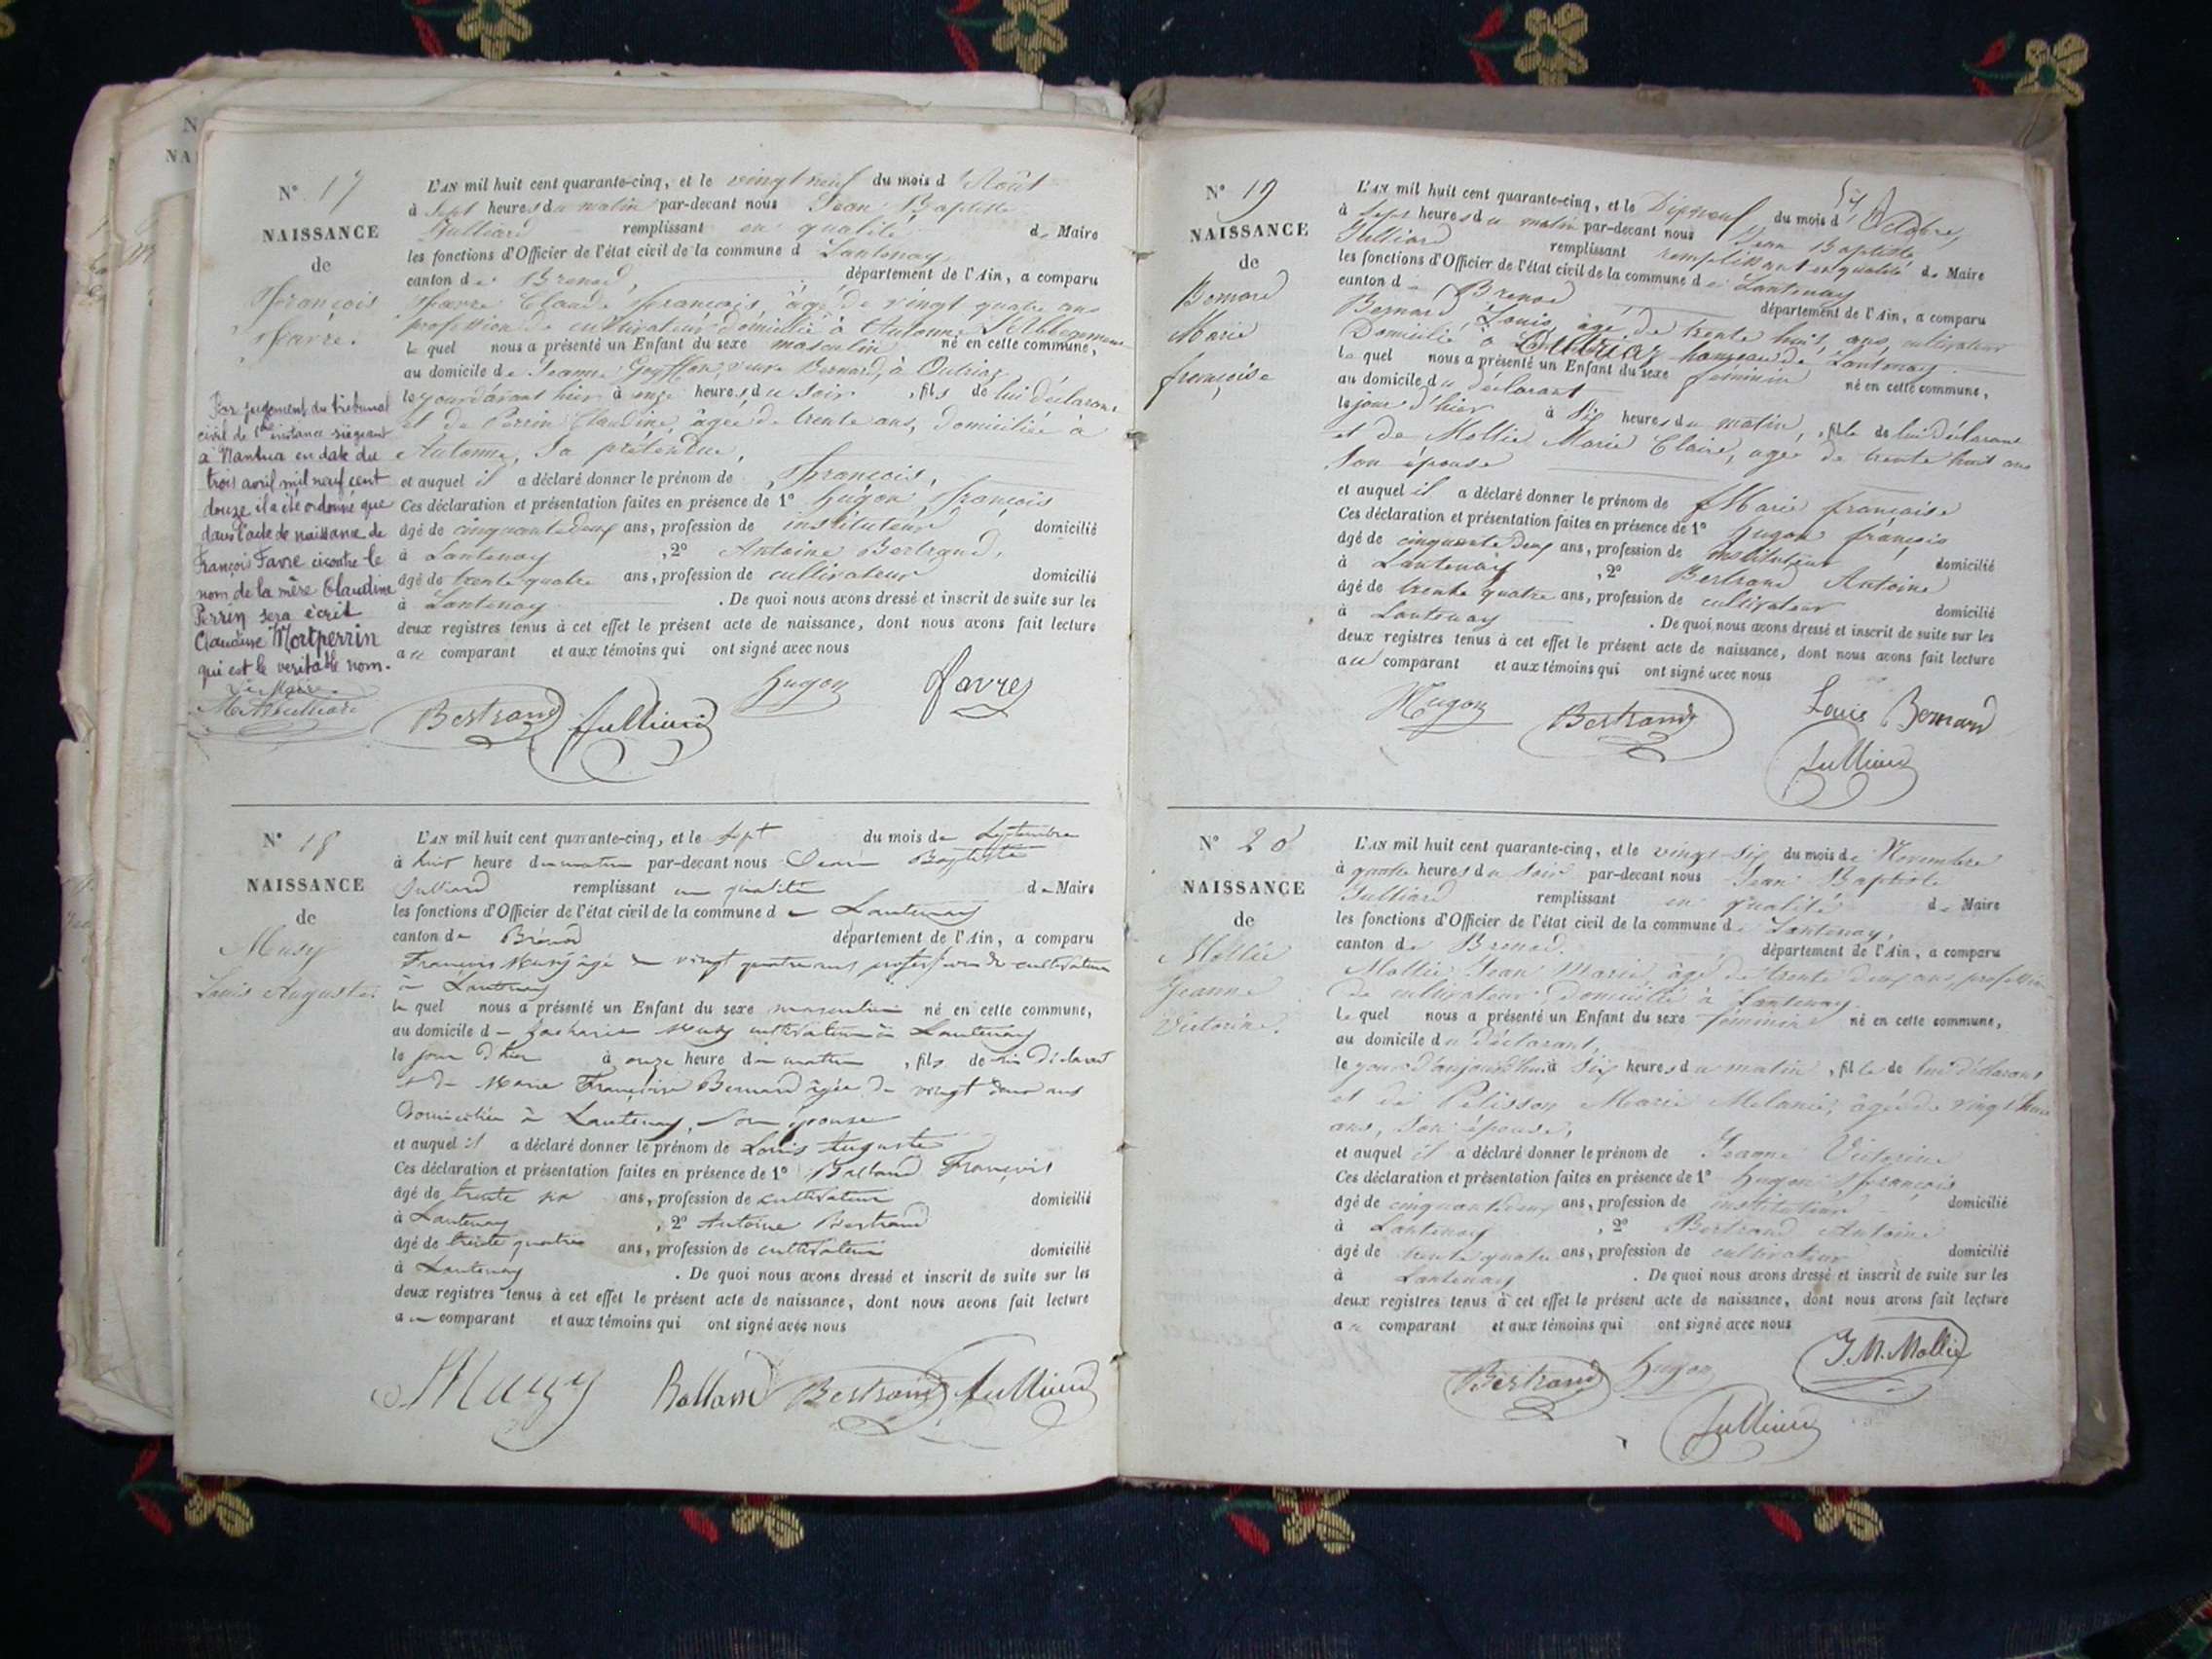 N° 17
NAISSANCE
de
François
Favre.
Par jugement du tribunal
civil de 1ère instance siégeant
à Nantua en date du
trois avril mil neuf cent
douze il a été ordonné que
dans l'acte de naissance de
François Favre ci contre le
nom de la mère Claudine
Perrin sera écrit
Claudine Montperrin
qui est le veritable nom.
Le Maire
L'AN mil huit cent quarante-cinq, et le vingt neuf du mois d'Août
à sept heures du matin par-devant nous Jean Baptiste
Julliard remplissant en qualité de Maire
les fonctions d'Officier de l'état civil de la commune d Lantenay
canton de Brenod, département de l'Ain, a comparu
Favre Claude François, âgé de vingt quatre ans
profession de cultivateur domicilié à Antonne
le quel nous a présenté un Enfant du sexe masculin né en cette commune,
au domicile de Jeanne veuve Bernard, à Outriaz
le jour d'avant hier à onze heures du soir, fils de lui déclarant
et de Perrin Claudine, âgée de trente ans, domiciliée à
Antonne, sa prétendue,
et auquel il a déclaré donner le prénom de François,
Ces déclaration et présentation faites en présence de 1° Hugon François
âgé de cinquante deux ans, profession de instituteur domicilié
à Lantenay, 2° Antoine Bertrand,
âgé de trente quatre ans, profession de cultivateur domicilié
à Lantenay. De quoi nous avons dressé et inscrit de suite sur les
deux registres tenus à cet effet le présent acte de naissance, dont nous avons fait lecture
au comparant et aux témoins qui ont signé avec nous
Hugon Favre
Bertrand Julliard
N° 18
NAISSANCE
de
Musy
Louis Auguste.
L'AN mil huit cent quarante-cinq, et le sept du mois de Septembre
à huit heure du matin par-devant nous Jean Baptiste
Julliard remplissant en qualité de Maire
les fonctions d'Officier de l'état civil de la commune de Lantenay
canton de Brénod département de l'Ain, a comparu
François Musy âgé de vingt quatre ans profession de cultivateur
à Lantenay
le quel nous a présenté un Enfant du sexe masculin né en cette commune,
au domicile de Zacharie Musy cultivateur à Lantenay
le jour d'hier à onze heure du matin, fils de lui déclarant
et de Marie Françoise Bernard âgée de vingt deux ans
Domiciliée à Lantenay, son épouse
et auquel il a déclaré donner le prénom de Louis Auguste
Ces déclaration et présentation faites en présence de 1° Balland François
âgé de trente six ans, profession de cultivateur domicilié
à Lantenay, 2° Antoine Bertrand
âgé de trente quatre ans, profession de cultivateur domicilié
à Lantenay. De quoi nous avons dressé et inscrit de suite sur les
deux registres tenus à cet effet le présent acte de naissance, dont nous avons fait lecture
au comparant et aux témoins qui ont signé avec nous
Musy Balland Bertrand Julliard
N° 19
NAISSANCE
de
Bernard
Marie
françoise
L'AN mil huit cent quarante-cinq, et le Dix neuf du mois d'Octobre,
à sept heures du matin par-devant nous Jean Baptiste
Julliard remplissant remplissant en qualité de Maire
les fonctions d'Officier de l'état civil de la commune de Lantenay
canton de Brenod département de l'Ain, a comparu
Bernard Louis, âgé de trente huit ans, cultivateur
Domicilié à Outriaz hameau de Lantenay
le quel nous a présenté un Enfant du sexe féminin né en cette commune,
au domicile du déclarant
le jour d'hier à six heures du matin, fille de lui déclarant
et de Mollie Marie Claire, agée de trente huit ans
Son épouse
et auquel il a déclaré donner le prénom de Marie françoise
Ces déclaration et présentation faites en présence de 1° Hugon françois
âgé de cinquante deux ans, profession de instituteur domicilié
à Lantenay, 2° Bertrand Antoine
âgé de trente quatre ans, profession de cultivateur domicilié
à Lantenay. De quoi nous avons dressé et inscrit de suite sur les
deux registres tenus à cet effet le présent acte de naissance, dont nous avons fait lecture
au comparant et aux témoins qui ont signé avec nous
Hugon Bertrand Louis Bernard
Julliard
N° 20
NAISSANCE
de
Mollie
Jeanne
Victorine.
L'AN mil huit cent quarante-cinq, et le vingt-six du mois de Novembre
à quatre heures du soir par-devant nous Jean Baptiste
Julliard remplissant en qualité de Maire
les fonctions d'Officier de l'état civil de la commune de Lantenay,
canton de Brenod. département de l'Ain, a comparu
Mollie Jean Marie âgé de trente deux ans, profession
de cultivateur domicilié à Lantenay.
le quel nous a présenté un Enfant du sexe féminin né en cette commune,
au domicile du déclarant,
le jour d'aujourd'hui à six heures du matin, fille de lui déclarant
et de Pelisson Marie Melanie, âgée de vingt
ans, son épouse,
et auquel il a déclaré donner le prénom de Jeanne Victorine
Ces déclaration et présentation faites en présence de 1° Hugon François
âgé de cinquante deux ans, profession de instituteur domicilié
à Lantenay, 2° Bertrand Antoine
âgé de trente quatre ans, profession de cultivateur domicilié
à Lantenay. De quoi nous avons dressé et inscrit de suite sur les
deux registres tenus à cet effet le présent acte de naissance, dont nous avons fait lecture
au comparant et aux témoins qui ont signé avec nous
Bertrand Hugon J. M. Mollie
Julliard